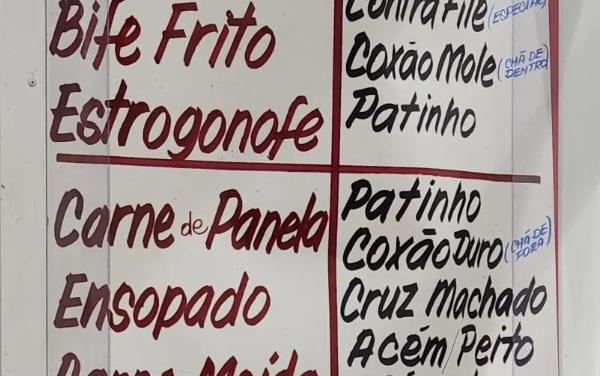 Bife Frito
Estrogonofe
Contra Filé (ESPECIAL)
Coxão Mole (CHÃ DE DENTRO)
Patinho
Carne de Panela
Ensopado
Patinho
Coxão Duro (CHÃ DE FORA)
Cruz Machado
Acém/Peito